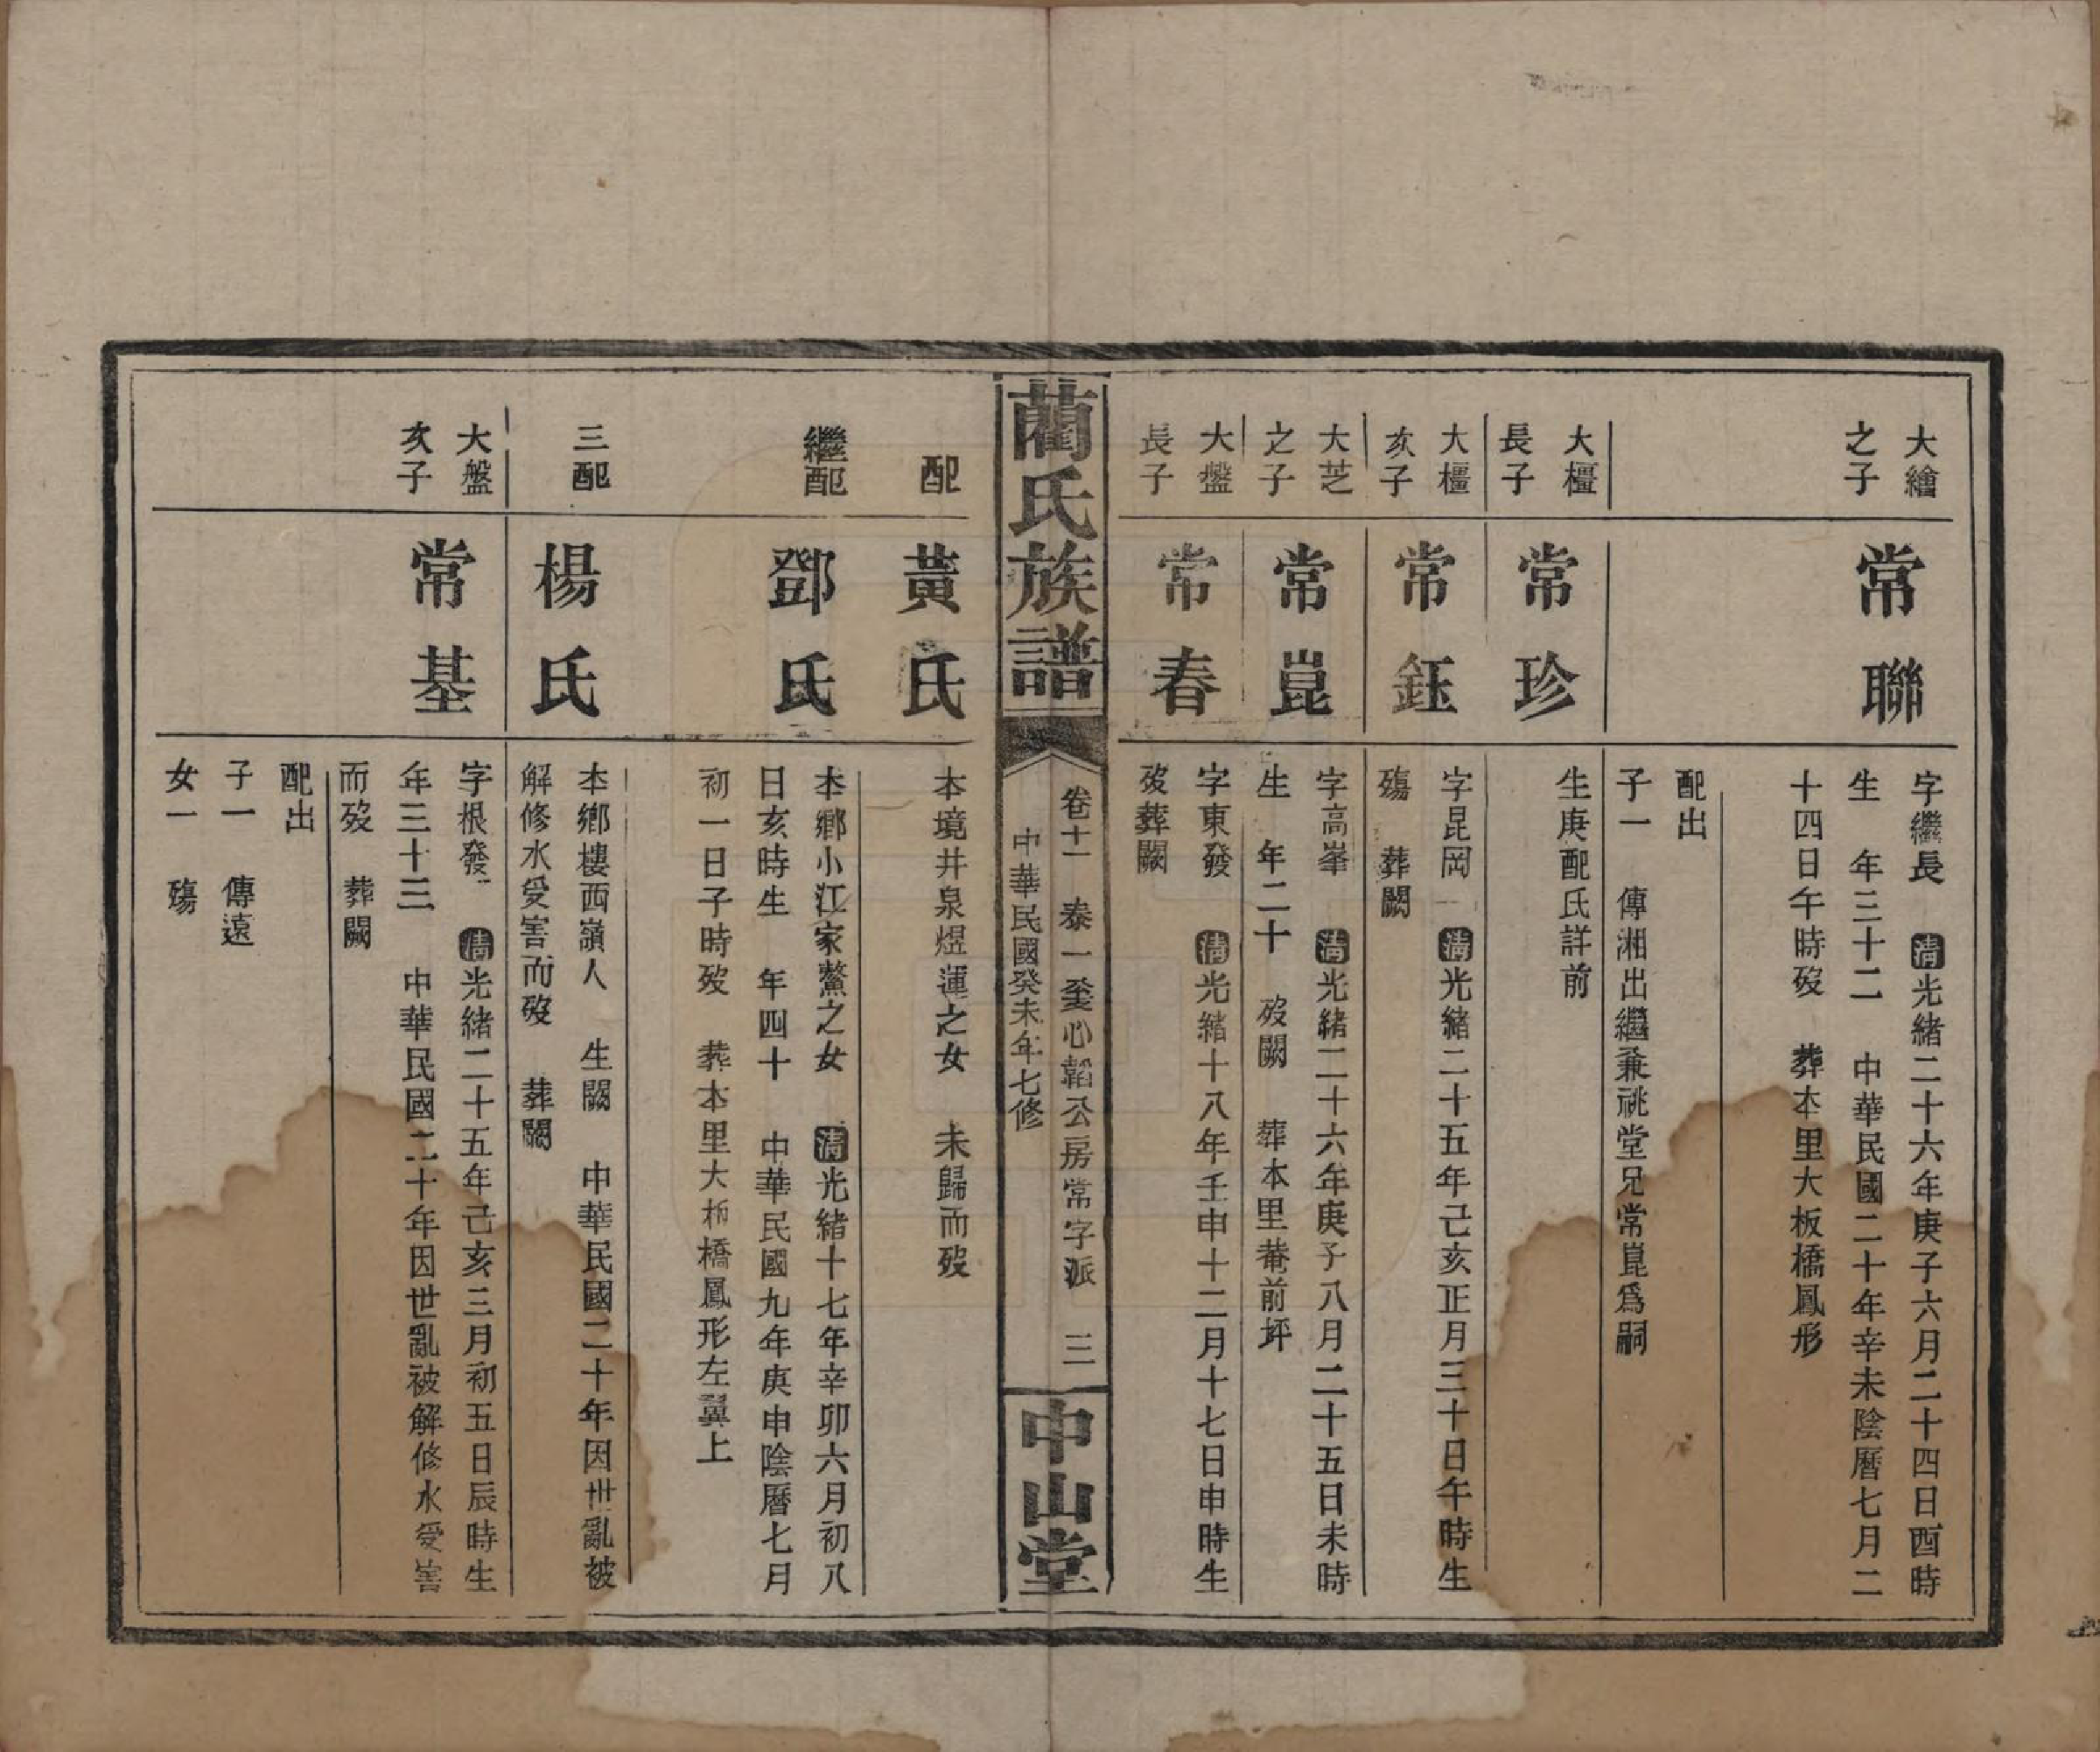 大繪
之子
常聯
字繼長 清光緒二十六年庚子六月二十四日酉時
生 年三十二 中華民國二十年辛未陰曆七月二
十四日午時歿 葬本里大板橋鳳形
配出
子一 傳湘出繼兼祧堂兄常崑爲嗣
大橿
長子
常珍
生庚配氏詳前
大橿
次子
常鈺
字昆岡 清光緒二十五年己亥正月三十日午時生
殤 葬闕
大芝
之子
常崑
字高峯 清光緒二十六年庚子八月二十五日未時
生 年二十 歿闕 葬本里菴前坪
大盤
長子
常春
字東發 清光緒十八年壬申十二月十七日申時生
歿葬闕
藺氏族譜
卷十一 泰一至心韜公房常字派 三
中華民國癸未年七修
中山堂
配
黃氏
本境井泉煜運之女 未歸而歿
繼配
鄧氏
本鄉小江家鰲之女 清光緒十七年辛卯六月初八
日亥時生 年四十 中華民國九年庚申陰曆七月
初一日子時歿 葬本里大板橋鳳形左翼上
三配
楊氏
本鄉樓西嶺人 生闕 中華民國二十年因世亂被
解修水受害而歿 葬闕
大盤
次子
常基
字根發 清光緒二十五年己亥三月初五日辰時生
年三十三 中華民國二十年因世亂被解修水受害
而歿 葬闕
配出
子一 傳遠
女一 殤